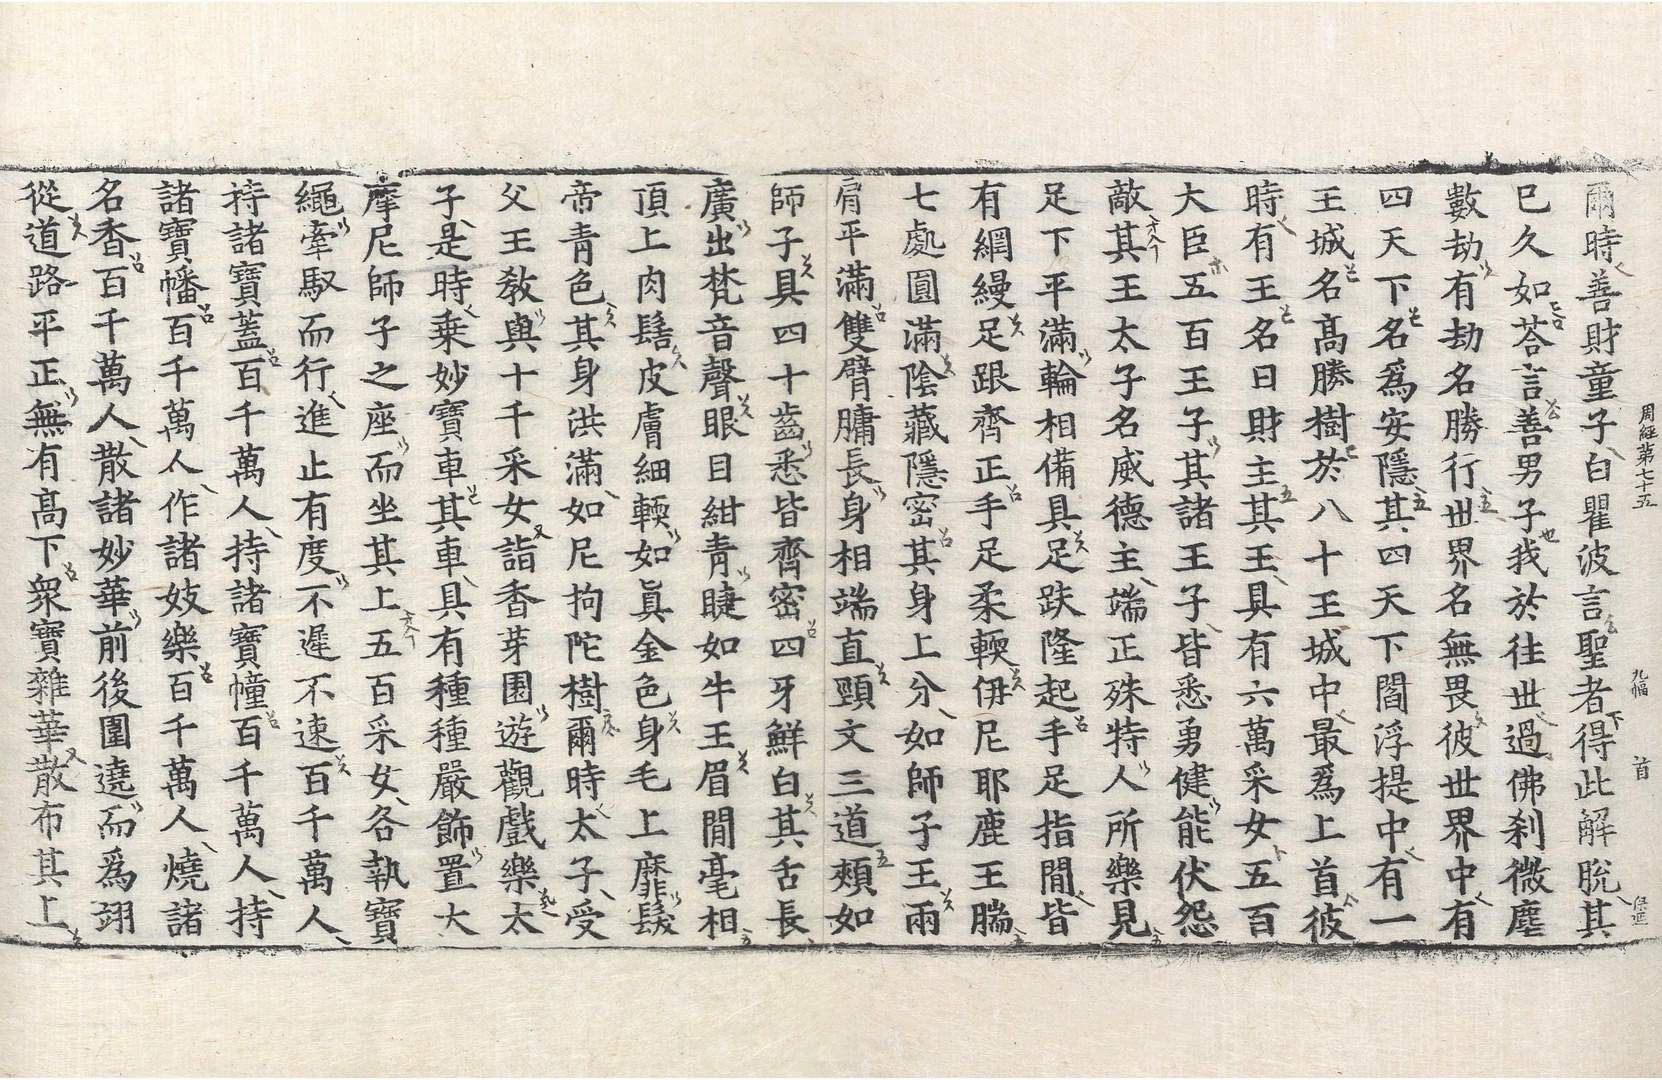 周經第七十五 九幅 首
爾時善財童子白瞿波言聖者得此解脫其
巳久如荅言善男子我於往世過佛刹微塵
數劫有劫名勝行世界名無畏彼世界中有
四天下名爲安隱其四天下閻浮提中有一
王城名高勝樹於八十王城中最爲上首彼
時有王名曰財主其王具有六萬采女五百
大臣五百王子其諸王子皆悉勇健能伏怨
敵其王太子名威德主端正殊特人所樂見
足下平滿輪相備具足趺隆起手足指閒皆
有網縵足跟齊正手足柔輭伊尼耶鹿王腨
七處圓滿陰藏隱密其身上分如師子王兩
肩平滿雙臂𦟛長身相端直頸文三道頰如
師子具四十齒悉皆齊密四牙鮮白其舌長
廣出梵音聲眼目紺青睫如牛王眉閒毫相
頂上肉髻皮膚細輭如眞金色身毛上靡髮
帝青色其身洪滿如尼拘陀樹爾時太子受
父王敎與十千采女詣香芽園遊觀戲樂太
子是時乗妙寶車其車具有種種嚴飾置大
摩尼師子之座而坐其上五百采女各執寶
繩牽馭而行進止有度不遲不速百千萬人
持諸寶蓋百千萬人持諸寶幢百千萬人持
諸寶幡百千萬人作諸妓樂百千萬人燒諸
名香百千萬人散諸妙華前後圍遶而爲翊
從道路平正無有高下衆寶雜華散布其上